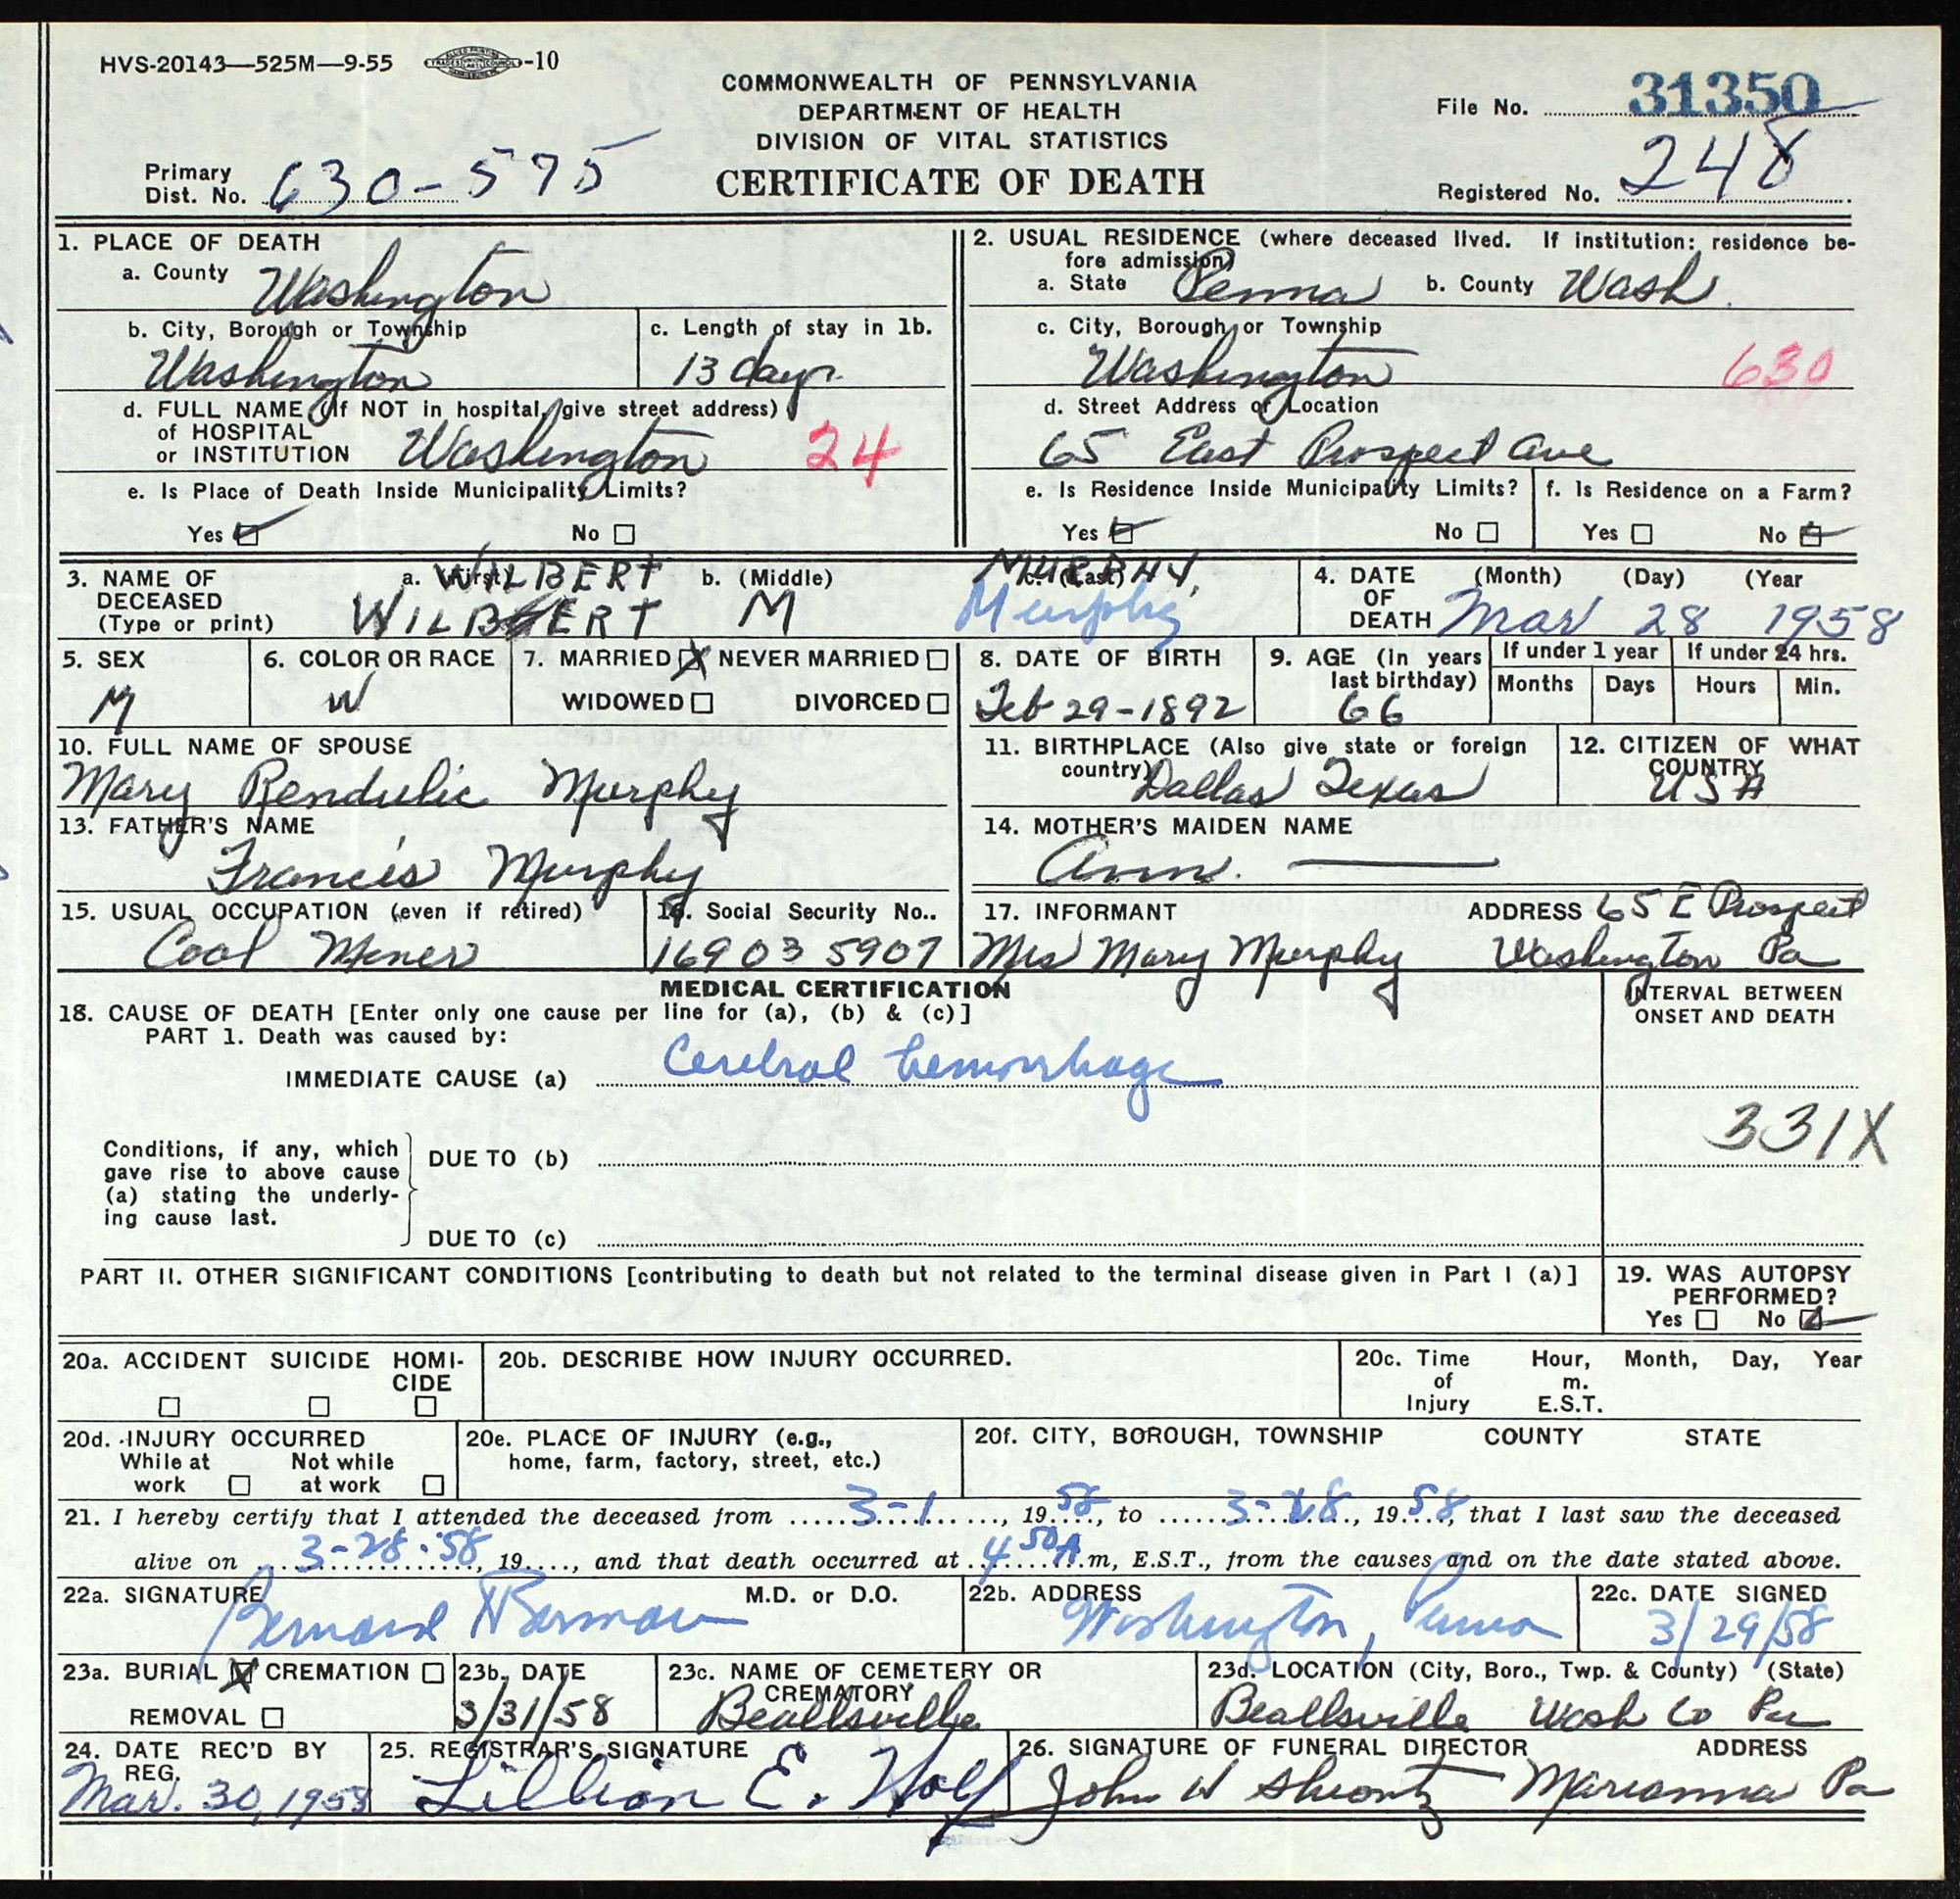 HVS-20143—525M—9-55 -10
COMMONWEALTH OF PENNSYLVANIA
DEPARTMENT OF HEALTH
DIVISION OF VITAL STATISTICS
CERTIFICATE OF DEATH
File No. 31350
Registered No. 248
Primary
Dist. No. 630-575
1. PLACE OF DEATH
a. County Washington
b. City, Borough or Township
Washington
c. Length of stay in 1b.
13 days
d. FULL NAME (If NOT in hospital, give street address)
of HOSPITAL
or INSTITUTION Washington 24
e. Is Place of Death Inside Municipality Limits?
Yes No
2. USUAL RESIDENCE (where deceased lived. If institution: residence be-
fore admission)
a. State Penna b. County Wash.
c. City, Borough or Township
Washington 630
d. Street Address or Location
65 East Prospect Ave
e. Is Residence Inside Municipality Limits?
Yes No
f. Is Residence on a Farm?
Yes No
3. NAME OF
DECEASED
(Type or print)
a. (First) WILBERT b. (Middle) c. (Last) MURPHY
WILBERT M Murphy
4. DATE (Month) (Day) (Year
OF
DEATH Mar 28 1958
5. SEX
M
6. COLOR OR RACE
W
7. MARRIED X NEVER MARRIED
WIDOWED DIVORCED
8. DATE OF BIRTH
Feb 29-1892
9. AGE (In years
last birthday)
66
If under 1 year If under 24 hrs.
Months Days Hours Min.
10. FULL NAME OF SPOUSE
Mary Rendulic Murphy
11. BIRTHPLACE (Also give state or foreign
country) Dallas Texas
12. CITIZEN OF WHAT
COUNTRY
USA
13. FATHER'S NAME
Francis Murphy
14. MOTHER'S MAIDEN NAME
Ann. —
15. USUAL OCCUPATION (even if retired)
Coal Miner
16. Social Security No..
169 03 5907
17. INFORMANT ADDRESS 65 E Prospect
Mrs Mary Murphy Washington Pa
MEDICAL CERTIFICATION
18. CAUSE OF DEATH [Enter only one cause per line for (a), (b) & (c)]
PART 1. Death was caused by:
IMMEDIATE CAUSE (a) Cerebral hemorrhage
INTERVAL BETWEEN
ONSET AND DEATH
331X
Conditions, if any, which
gave rise to above cause
(a) stating the underly-
ing cause last.
DUE TO (b)
DUE TO (c)
PART II. OTHER SIGNIFICANT CONDITIONS [contributing to death but not related to the terminal disease given in Part I (a)]
19. WAS AUTOPSY
PERFORMED?
Yes No
20a. ACCIDENT SUICIDE HOMI-
CIDE
20b. DESCRIBE HOW INJURY OCCURRED.
20c. Time Hour, Month, Day, Year
of m.
Injury E.S.T.
20d. INJURY OCCURRED
While at Not while
work at work
20e. PLACE OF INJURY (e.g.,
home, farm, factory, street, etc.)
20f. CITY, BOROUGH, TOWNSHIP COUNTY STATE
21. I hereby certify that I attended the deceased from 3-1, 1958, to 3-28, 1958, that I last saw the deceased
alive on 3-28-58, 19...., and that death occurred at 4 50 A m, E.S.T., from the causes and on the date stated above.
22a. SIGNATURE M.D. or D.O.
Bernard Berman
22b. ADDRESS
Washington, Penna
22c. DATE SIGNED
3/29/58
23a. BURIAL X CREMATION
REMOVAL
23b. DATE
3/31/58
23c. NAME OF CEMETERY OR
CREMATORY
Beallsville
23d. LOCATION (City, Boro., Twp. & County) (State)
Beallsville Wash Co Pa
24. DATE REC'D BY
REG.
Mar. 30, 1958
25. REGISTRAR'S SIGNATURE
Lillian E. Wolf
26. SIGNATURE OF FUNERAL DIRECTOR ADDRESS
John W Shrontz Marianna Pa